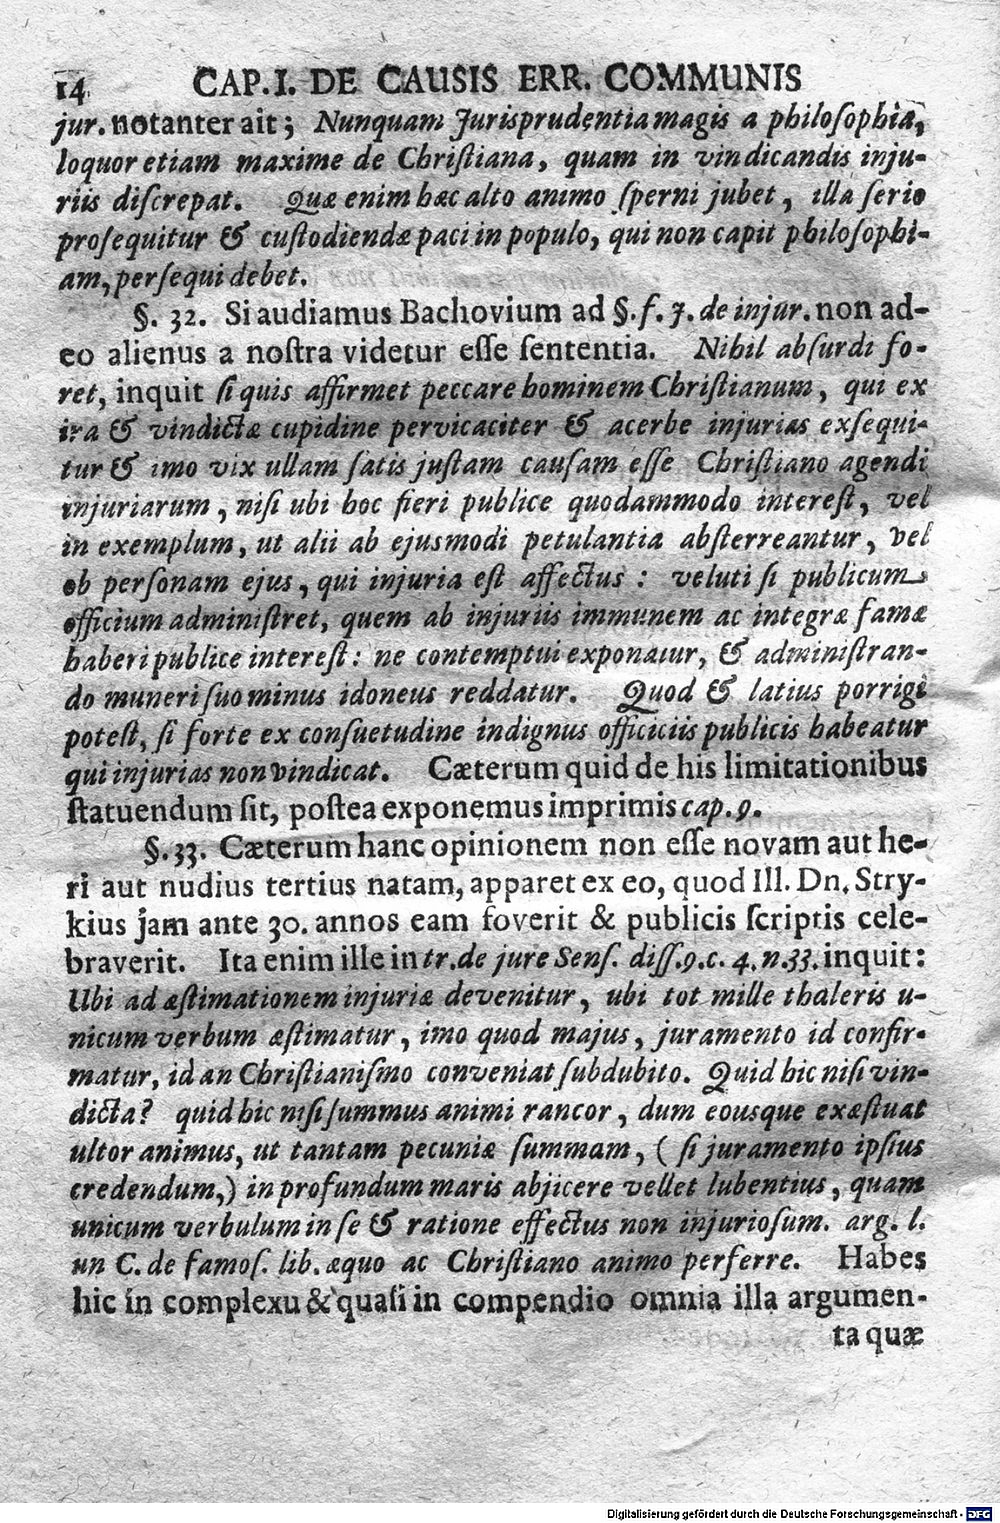 14 CAP. I. DE CAUSIS ERR. COMMUNIS
jur. notanter ait; Nunquam Jurisprudentia magis a philoſophia,
loquor etiam maxime de Chriſtiana, quam in vindicandis inju-
riis diſcrepat. Quæ enim hæc alto animo ſperni jubet, illa ſerio
proſequitur & cuſtodiendæ paci in populo, qui non capit philoſophi-
am, perſequi debet.
§. 32. Si audiamus Bachovium ad §. f. J. de injur. non ad-
eo alienus a noſtra videtur eſſe ſententia. Nihil abſurdi fo-
ret, inquit ſi quis affirmet peccare hominem Chriſtianum, qui ex
ira & vindictæ cupidine pervicaciter & acerbe injurias exſequi-
tur & imo vix ullam ſatis juſtam cauſam eſſe Chriſtiano agendi
injuriarum, niſi ubi hoc fieri publice quodammodo intereſt, vel
in exemplum, ut alii ab ejusmodi petulantia abſterreantur, vel
ob perſonam ejus, qui injuria eſt affectus: veluti ſi publicum
officium adminiſtret, quem ab injuriis immunem ac integræ famæ
haberi publice intereſt: ne contemptui exponatur, & adminiſtran-
do muneri ſuo minus idoneus reddatur. Quod & latius porrigi
poteſt, ſi forte ex conſuetudine indignus officiciis publicis habeatur
qui injurias non vindicat. Cæterum quid de his limitationibus
ſtatuendum ſit, poſtea exponemus imprimis cap. 9.
§. 33. Cæterum hanc opinionem non eſſe novam aut he-
ri aut nudius tertius natam, apparet ex eo, quod Ill. Dn. Stry-
kius jam ante 30. annos eam foverit & publicis ſcriptis cele-
braverit. Ita enim ille in tr. de jure Senſ. diſſ. 9. c. 4. n. 33. inquit:
Ubi ad æſtimationem injuriæ devenitur, ubi tot mille thaleris u-
nicum verbum æſtimatur, imo quod majus, juramento id confir-
matur, id an Chriſtianiſmo conveniat ſubdubito. Quid hic niſi vin-
dicta? quid hic niſi ſummus animi rancor, dum eousque exæſtuat
ultor animus, ut tantam pecuniæ ſummam, (ſi juramento ipſius
credendum,) in profundum maris abjicere vellet lubentius, quam
unicum verbulum in ſe & ratione effectus non injurioſum. arg. l.
un C. de famoſ. lib. æquo ac Chriſtiano animo perferre. Habes
hic in complexu & quaſi in compendio omnia illa argumen-
ta quæ
Digitalisierung gefördert durch die Deutsche Forschungsgemeinschaft - DFG